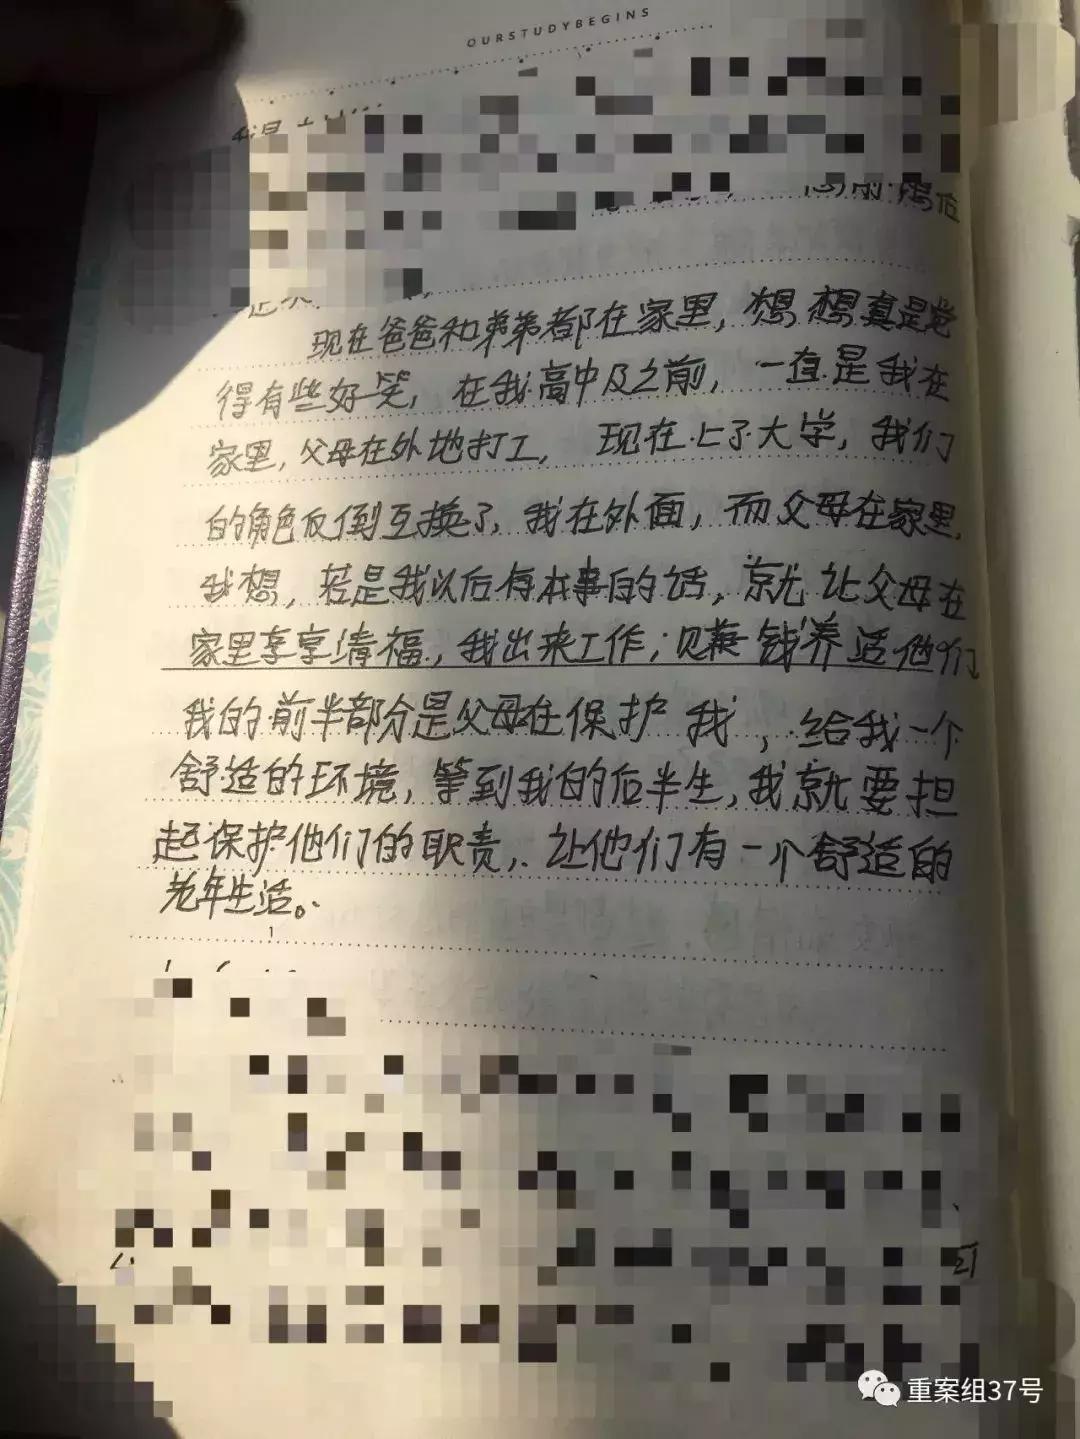 OURSTUDYBEGINS
现在爸爸和弟弟都在家里，想想真是觉
得有些好笑，在我高中及之前，一直是我在
家里，父母在外地打工，现在上了大学，我们
的角色反倒互换了，我在外面，而父母在家里，
我想，若是我以后有本事的话，就让父母在
家里享享清福，我出来工作，赚钱养活他们
我的前半部分是父母在保护我，给我一个
舒适的环境，等到我的后半生，我就要担
起保护他们的职责，让他们有一个舒适的
老年生活。
重案组37号